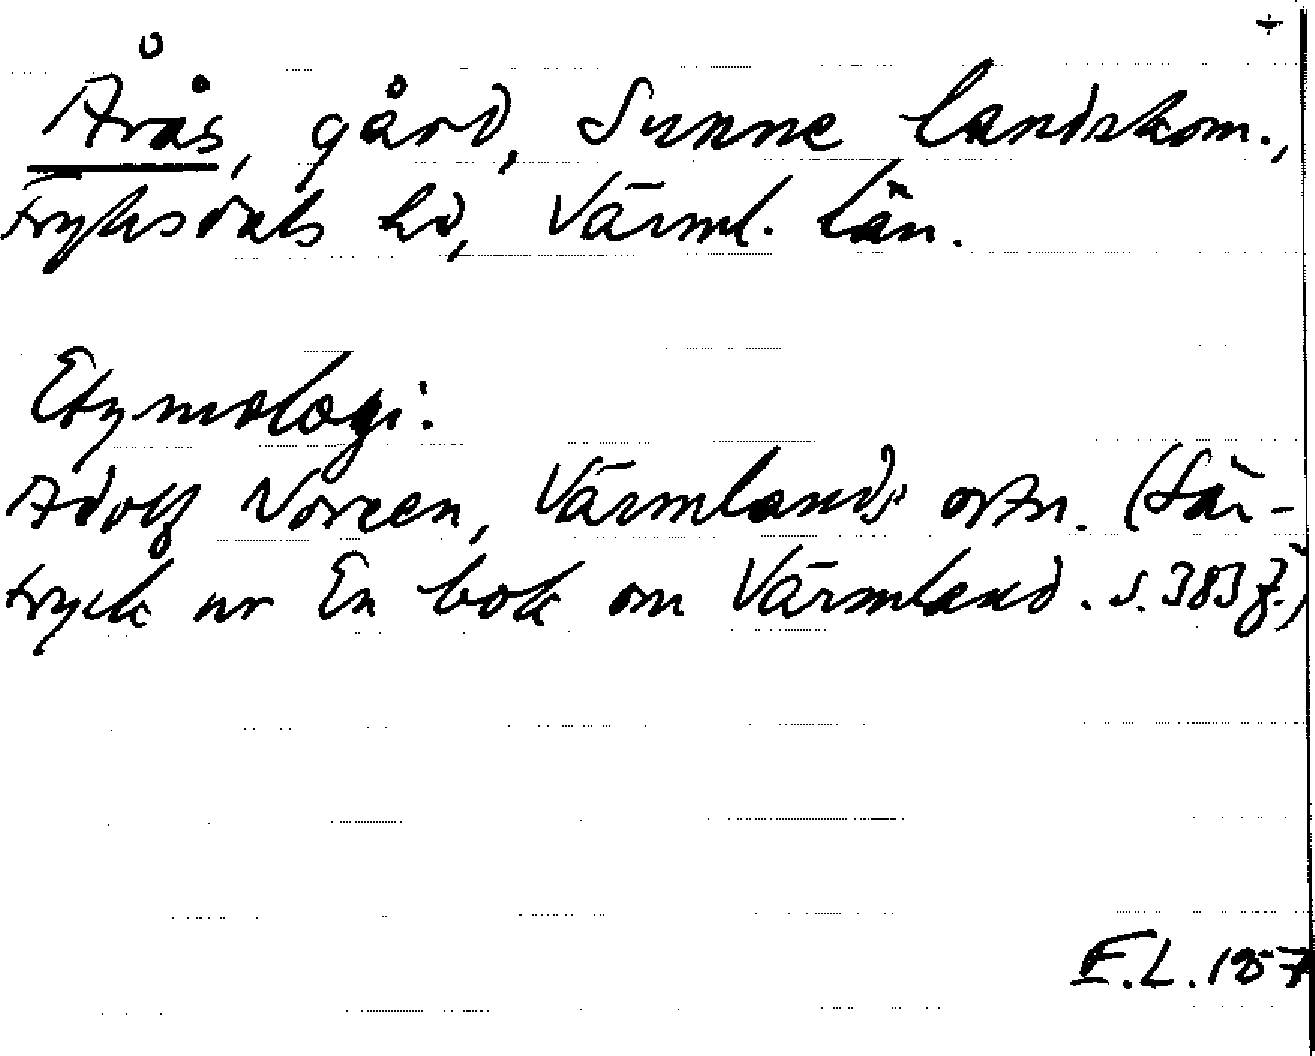 Årås, gård, Sunne landskom.,
Fryksdals hd, Värml. län.
Etymologi:
Adolf Noreen, Värmlands ortn. (Sär-
tryck ur En bok om Värmland. s. 383 f.)
E.L. 1957